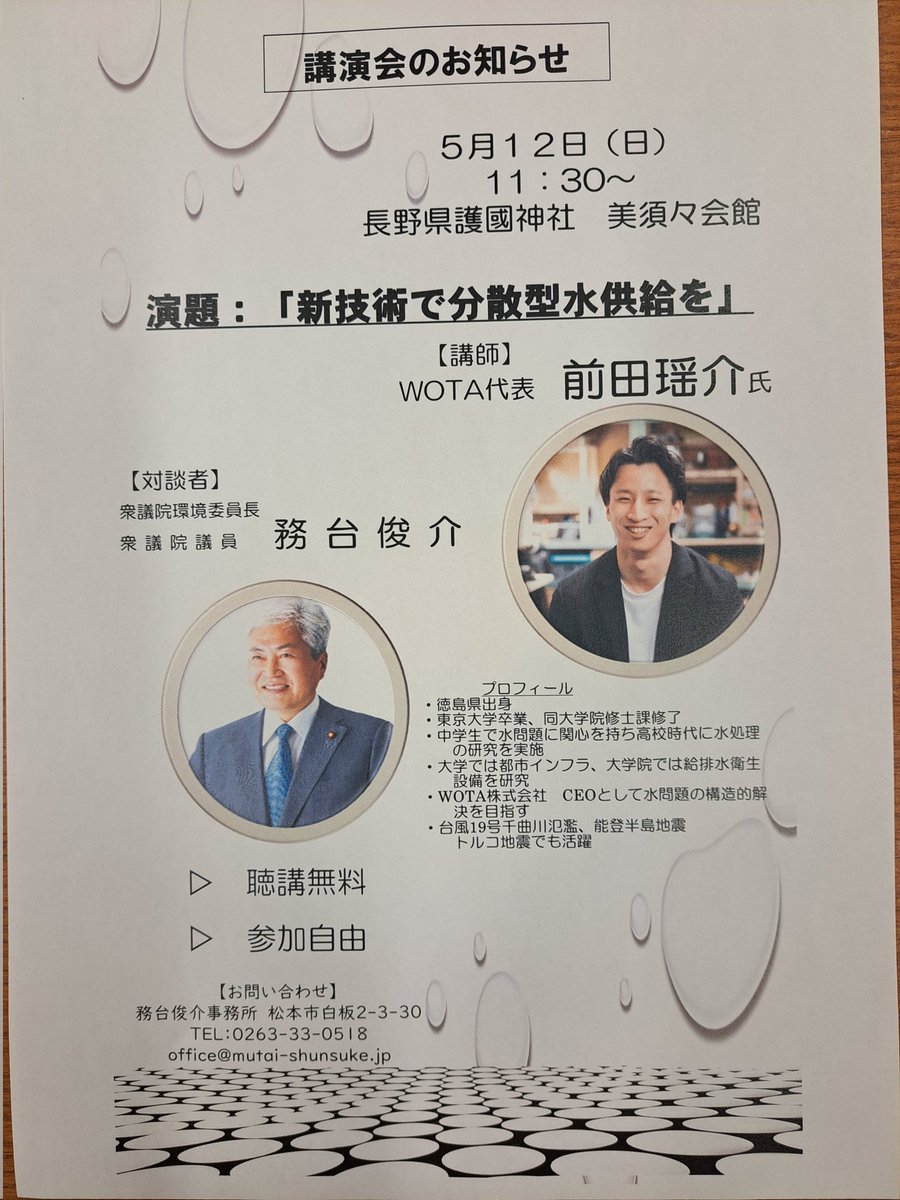 講演会のお知らせ
5月12日（日）
11：30～
長野県護國神社　美須々会館
演題：「新技術で分散型水供給を」
【講師】
WOTA代表　前田瑶介氏
【対談者】
衆議院環境委員長
衆議院議員　務台俊介
プロフィール
・徳島県出身
・東京大学卒業、同大学院修士課修了
・中学生で水問題に関心を持ち高校時代に水処理
の研究を実施
・大学では都市インフラ、大学院では給排水衛生
設備を研究
・WOTA株式会社　CEOとして水問題の構造的解
決を目指す
・台風19号千曲川氾濫、能登半島地震
トルコ地震でも活躍
▷　聴講無料
▷　参加自由
【お問い合わせ】
務台俊介事務所 松本市白板2-3-30
TEL:0263-33-0518
office@mutai-shunsuke.jp